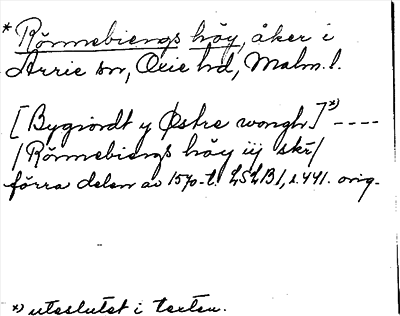 * Rönnebiergs höy, åker i
Arrie sn, Oxie hd, Malm. l.
[Bygiordt y Østre wongh.] *) ----
/Rönnebiergs höy iij skr/
förra delen av 1570-t. LSLB1, s. 441. orig.
*) uteslutet i texten.